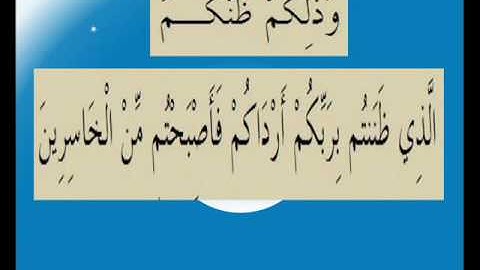 وَذَلِكُمْ ظَنُّكُمُ
الَّذِي ظَنَنتُم بِرَبِّكُمْ أَرْدَاكُمْ فَأَصْبَحْتُم مِّنْ الْخَاسِرِينَ